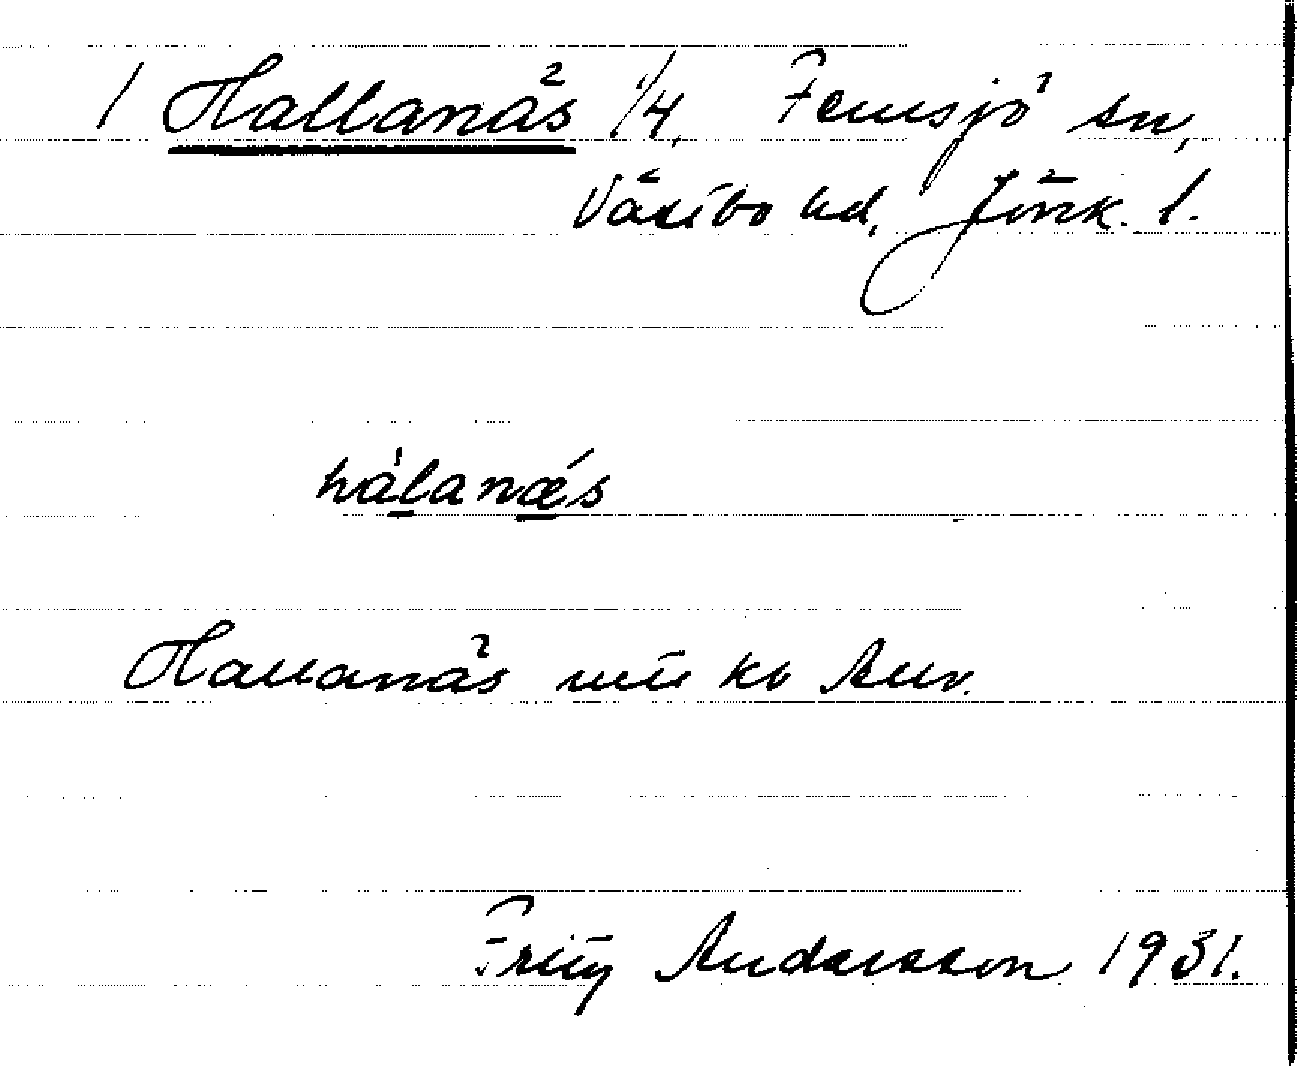 / Hallanäs 1/4, Femsjö sn,
Västbo hd, Jönk. l.
hàlanǽs
Hallanäs
Fritz Andersson 1931.